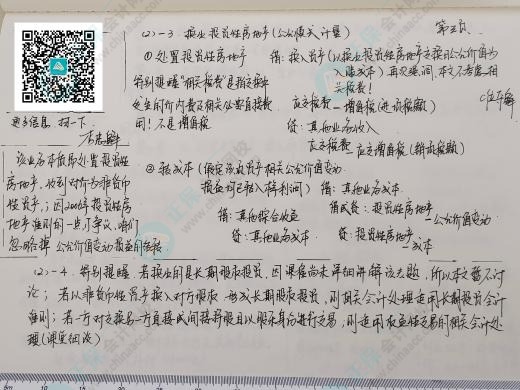 第三页
(2)-3 换出投资性房地产(公允模式计量)
①处置投资性房地产
借:换入资产(以换出投资性房地产交换日公允价值为
入账成本)再次强调,本文不考虑相
关税费!
特别提醒"相关税费"是指交换中
发生的价内费及相关必要直接费
用!不是增值税
应交税费—增值税(进项税额)
贷:其他业务收入
应交税费—应交增值税(销项税额)
更多信息,扫一下
该业务本质即处置投资性
房地产,收到对价为非货币
性资产;因2006年投资性房
地产准则有一点小争议,咱们
忽略掉公允价值变动损益的结转
②转成本(假定该资产相关公允价值变动
损益均已转入本年利润)
借:其他业务成本
借:其他综合收益
贷:其他业务成本
借或贷:投资性房地产
—公允价值变动
贷:投资性房地产
—成本
(2)-4 特别提醒:若换出的是长期股权投资,因课程尚未详细讲解该专题,所以本文暂不讨
论;若以非货币性资产换入对方股权,形成长期股权投资,则相关会计处理适用长期投资会计
准则;若一方对交易另一方直接或间接持股且以股东身份进行交易,则适用权益性交易的相关会计处
理(课堂细说)